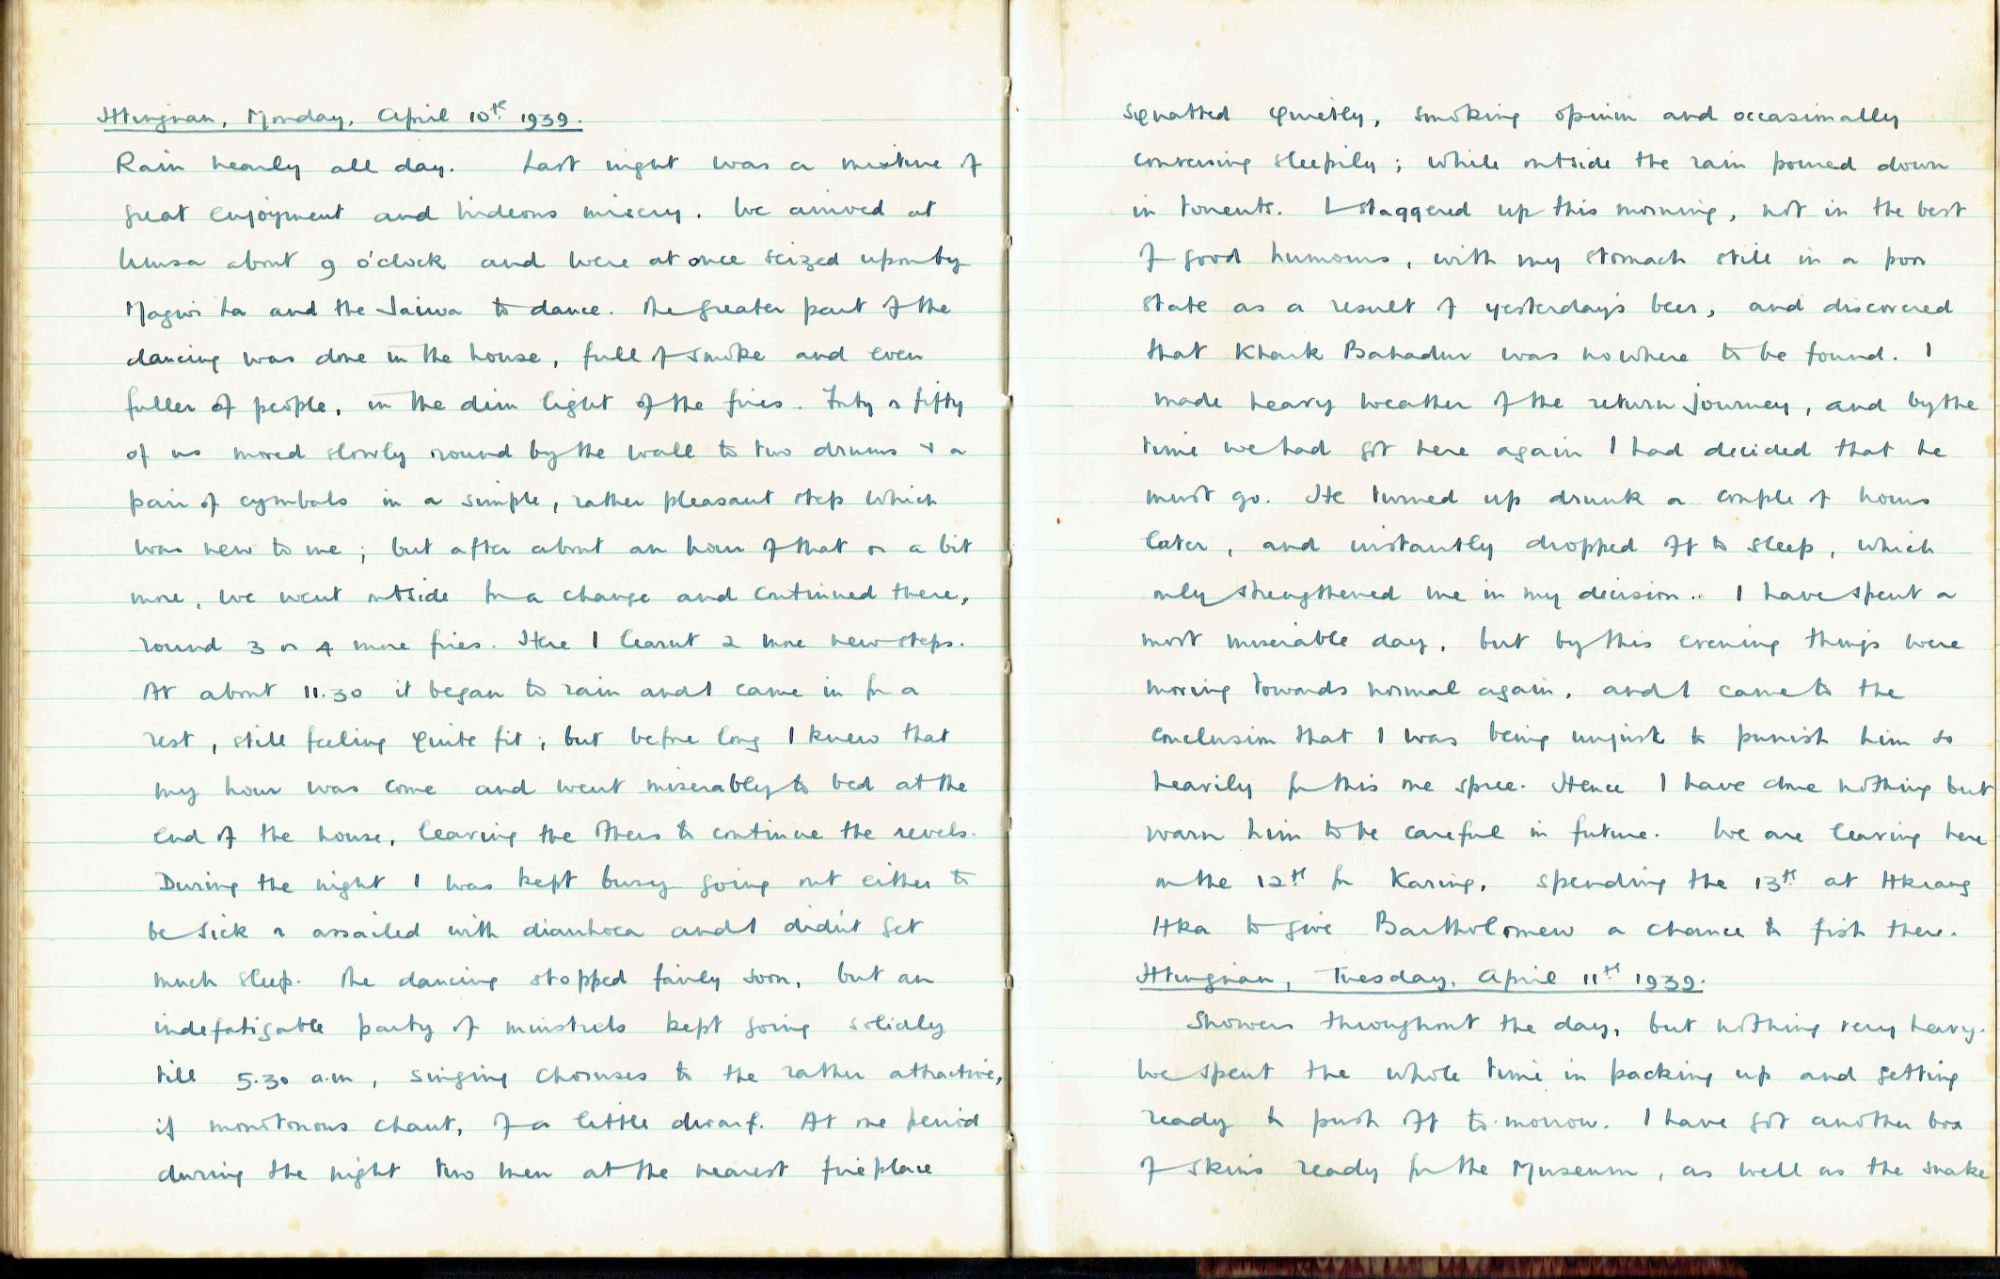 Htingnan, Monday, April 10th 1939.
Rain nearly all day. Last night was a mixture of
great enjoyment and hideous misery. We arrived at
about 9 o'clock and were at once seized upon by
Magwi La and the Jaiwa to dance. The greater part of the
dancing was done in the house, full of smoke and even
fuller of people, in the dim light of the fires. Forty or fifty
of us moved slowly round by the wall to two drums & a
pair of cymbals in a simple, rather pleasant step which
was new to me; but after about an hour of that or a bit
more, we went outside for a change and continued there,
round 3 or 4 more fires. Here I learnt 2 more new steps.
At about 11.30 it began to rain and I came in for a
rest, still feeling quite fit; but before long I knew that
my hour was come and went miserably to bed at the
end of the house, leaving the others to continue the revels.
During the night I was kept busy going out either to
be sick or assailed with diarrhoea and I didn't get
much sleep. The dancing stopped fairly soon, but an
indefatigable party of minstrels kept going solidly
till 5.30 a.m, singing choruses to the rather attractive,
if monotonous chant, of a little dwarf. At one period
during the night two men at the nearest fireplace
squatted quietly, smoking opium and occasionally
conversing sleepily; while outside the rain poured down
in torrents. I staggered up this morning, not in the best
of good humours, with my stomach still in a poor
state as a result of yesterday's beer, and discovered
that Khark Bahadur was nowhere to be found. I
made heavy weather of the return journey, and by the
time we had got here again I had decided that he
must go. He turned up drunk a couple of hours
later, and instantly dropped off to sleep, which
only strengthened me in my decision.. I have spent a
most miserable day, but by this evening things were
moving towards normal again, and I came to the
conclusion that I was being unjust to punish him so
heavily for this one spree. Hence I have done nothing but
warn him to be careful in future. We are leaving here
on the 12th for Karing, spending the 13th at Hkrang
Hka to give Bartholomew a chance to fish there.
Htingnan, Tuesday, April 11th 1939.
Showers throughout the day, but nothing very heavy.
We spent the whole time in packing up and getting
ready to push off to-morrow. I have got another box
of skins ready for the Museum, as well as the snake